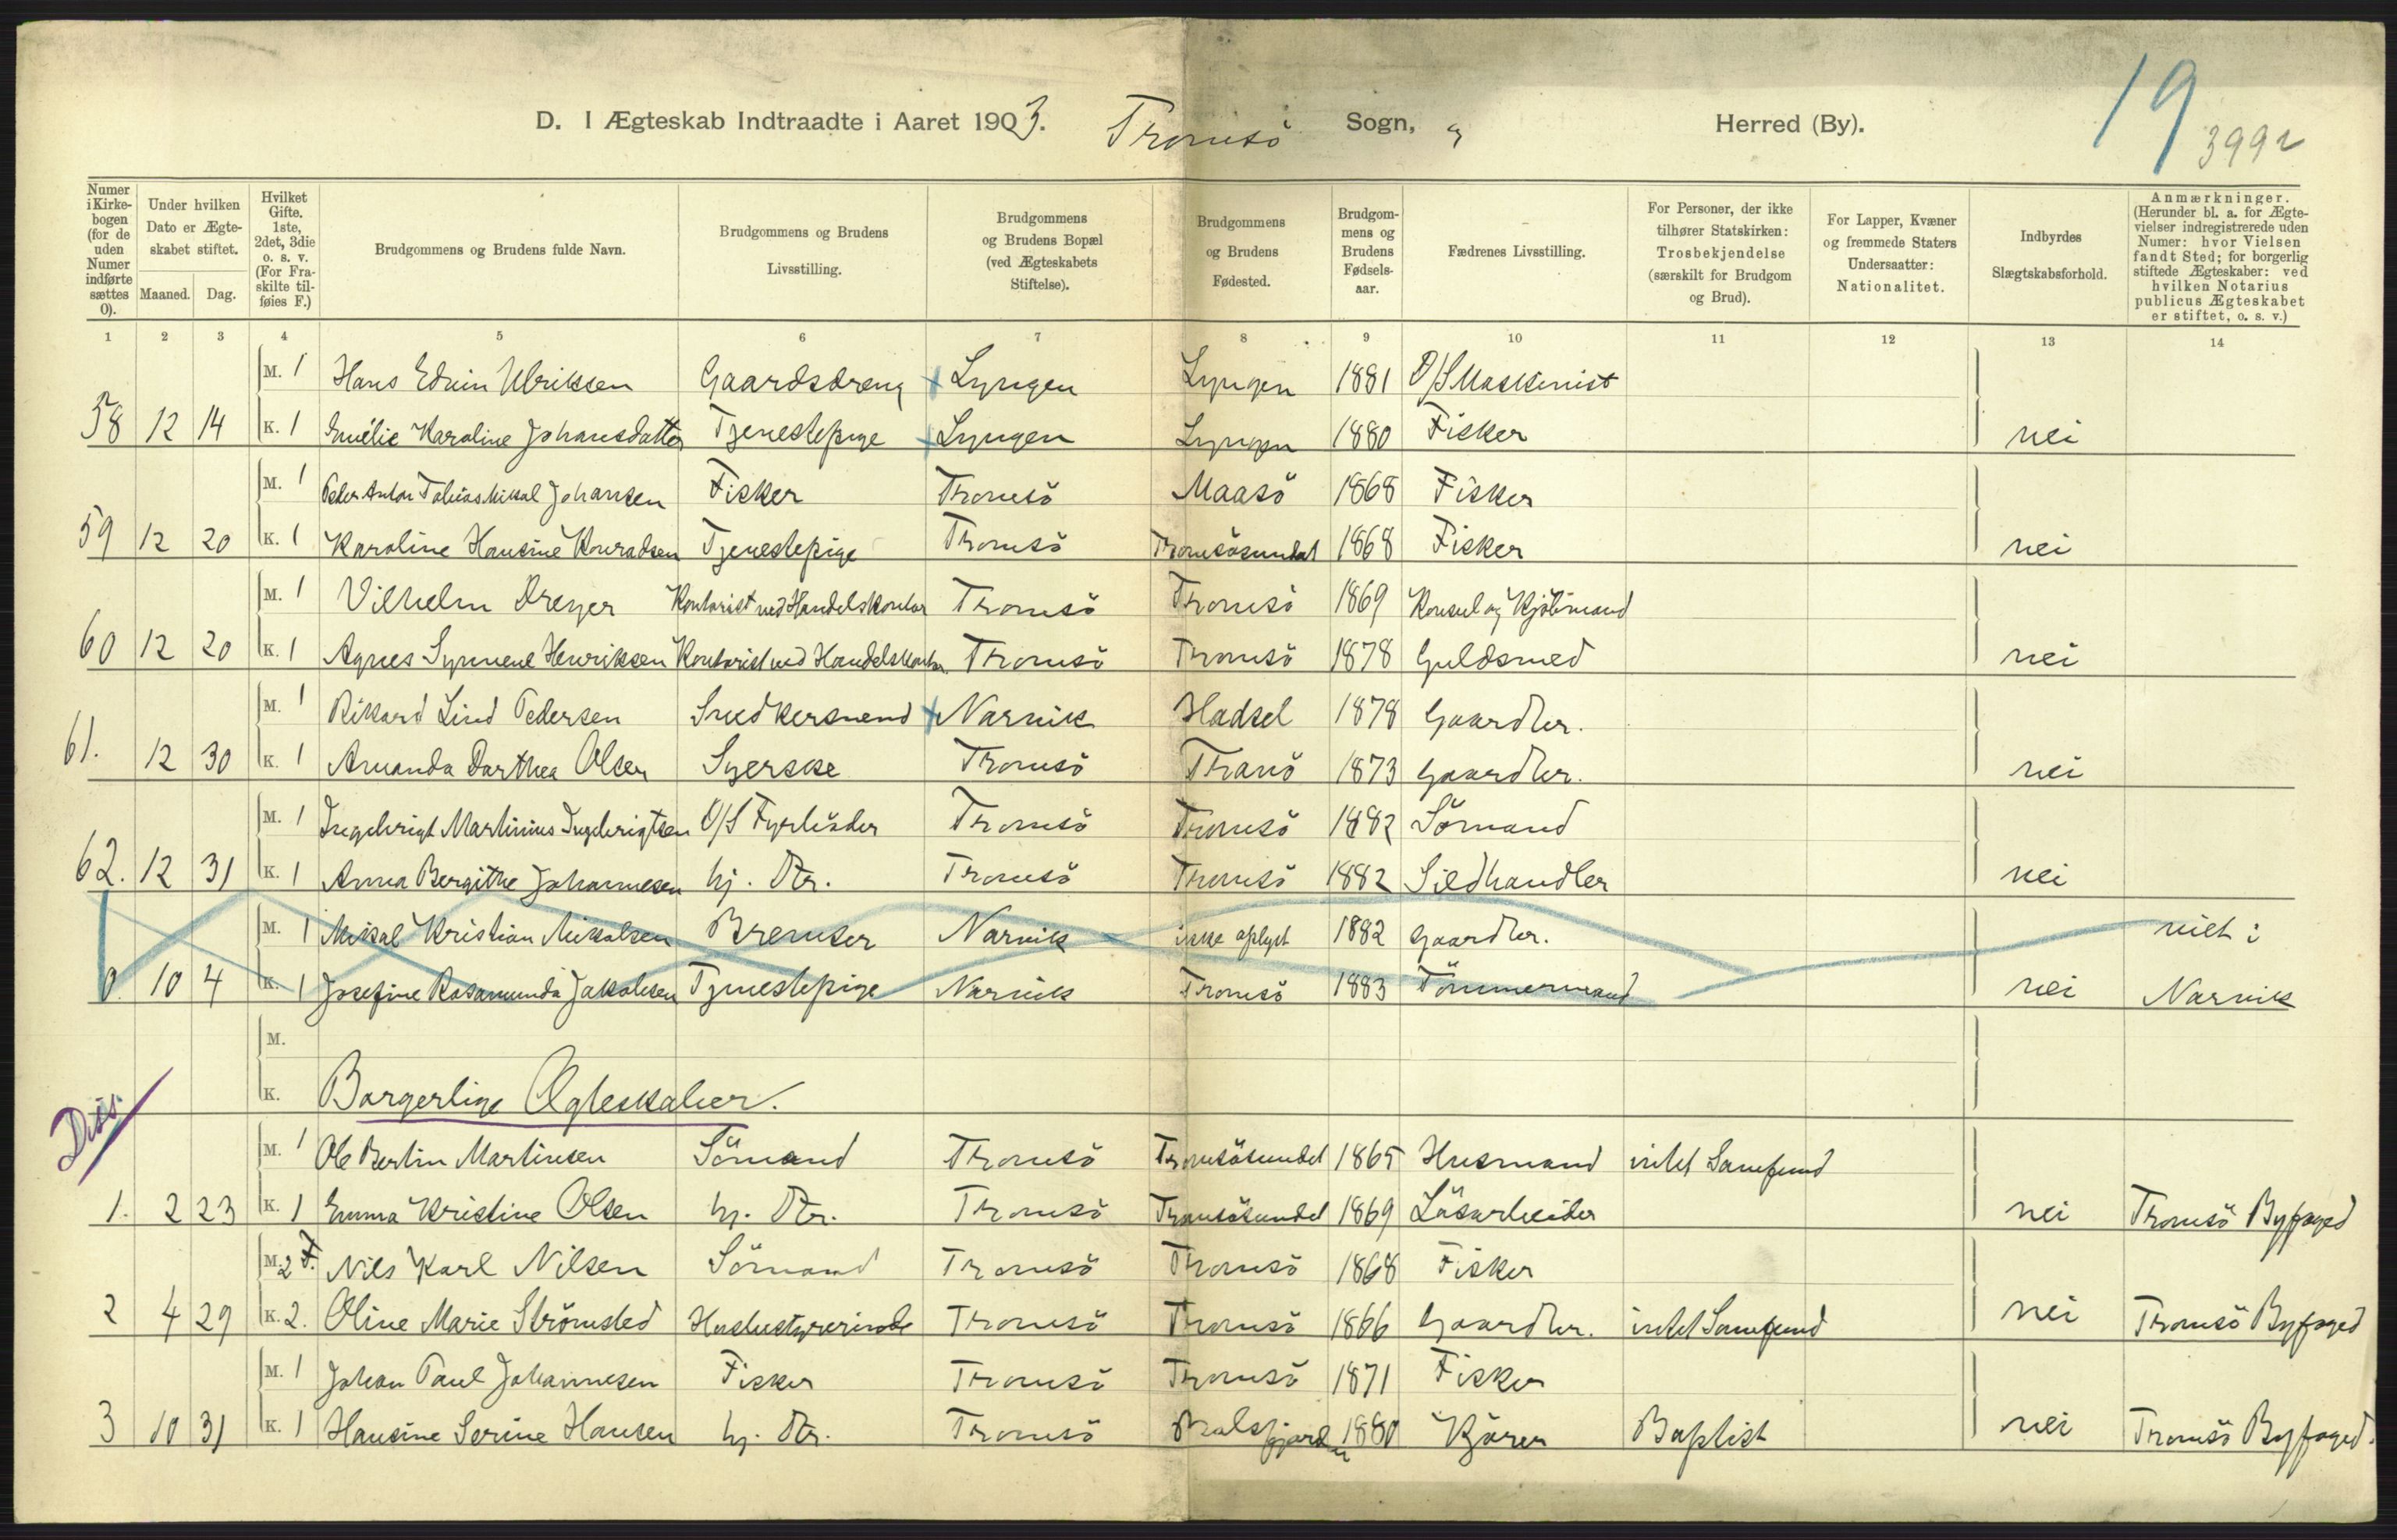 19
3992
D. I Ægteskab Indtraadte i Aaret 1903. Tromsö Sogn, Herred (By).
Numer i Kirke- bogen (for de uden Numer indførte sættes 0).
Under hvilken Dato er Ægte- skabet stiftet.
Maaned. Dag.
Hvilket Gifte. 1ste, 2det, 3die o. s. v. (For Fra- skilte til- føies F.)
Brudgommens og Brudens fulde Navn.
Brudgommens og Brudens Livsstilling.
Brudgommens og Brudens Bopæl (ved Ægteskabets Stiftelse).
Brudgommens og Brudens Fødested.
Brudgom- mens og Brudens Fødsels- aar.
Fædrenes Livsstilling.
For Personer, der ikke tilhører Statskirken: Trosbekjendelse (særskilt for Brudgom og Brud).
For Lapper, Kvæner og fremmede Staters Undersaatter: Nationalitet.
Indbyrdes Slægtskabsforhold.
Anmærkninger. (Herunder bl. a. for Ægte- vielser indregistrerede uden Numer: hvor Vielsen fandt Sted; for borgerlig stiftede Ægteskaber: ved hvilken Notarius publicus Ægteskabet er stiftet, o. s. v.)
1 2 3 4 5 6 7 8 9 10 11 12 13 14
M. 1 Hans Edvin Ulriksen Gaardsdreng Lyngen Lyngen 1881 D/S Maskinist
58 12 14 K. 1 Emélie Karoline Johansdatter Tjenestepige Lyngen Lyngen 1880 Fisker nei
M. 1 Peder Anton Tobias Mikal Johansen Fisker Tromsö Maasö 1868 Fisker
59 12 20 K. 1 Karoline Hansine Konradsen Tjenestepige Tromsö Tromsösundet 1868 Fisker nei
M. 1 Vilhelm Dreyer Kontorist ved Handelskontor Tromsö Tromsö 1869 Konsul og Kjöbmand
60 12 20 K. 1 Agnes Synnene Henriksen Kontorist ved Handelskontor Tromsö Tromsö 1878 Guldsmed nei
M. 1 Rikard Lind Pedersen Snedkersvend Narvik Hadsel 1878 Gaardbr.
61. 12 30 K. 1 Amanda Dorthea Olsen Syerske Tromsö Tranö 1873 Gaardbr. nei
M. 1 Ingebrigt Martinius Ingebrigtsen D/S Fyrböder Tromsö Tromsö 1882 Sömand
62. 12 31 K. 1 Anna Bergithe Johannesen hj. Dtr. Tromsö Tromsö 1882 Sildhandler nei
M. 1 Mikal Kristian Mikalsen Bremser Narvik ikke oplyst 1882 Gaardbr. viet i
0. 10 4 K. 1 Josefine Rosamunda Jakobsen Tjenestepige Narvik Tromsö 1883 Tömmermand nei Narvik
M.
K. Borgerlige Ægteskaber.
Diss.
M. 1 Ole Bertin Martinsen Sömand Tromsö Tromsösundet 1865 Husmand intet Samfund
1. 2 23 K. 1 Emma Kristine Olsen hj. Dtr. Tromsö Tromsösundet 1869 Lösarbeider nei Tromsö Byfoged
M. 2 F. Nils Karl Nilsen Sömand Tromsö Tromsö 1868 Fisker
2 4 29 K. 2. Oline Marie Strömsted Husbestyrerinde Tromsö Tromsö 1866 Gaardbr. intet Samfund nei Tromsö Byfoged
M. 1 Johan Paul Johannesen Fisker Tromsö Tromsö 1871 Fisker
3 10 31 K. 1 Hansine Serine Hansen hj. Dtr. Tromsö Balsfjorden 1880 Kjörer Baptist nei Tromsö Byfoged.